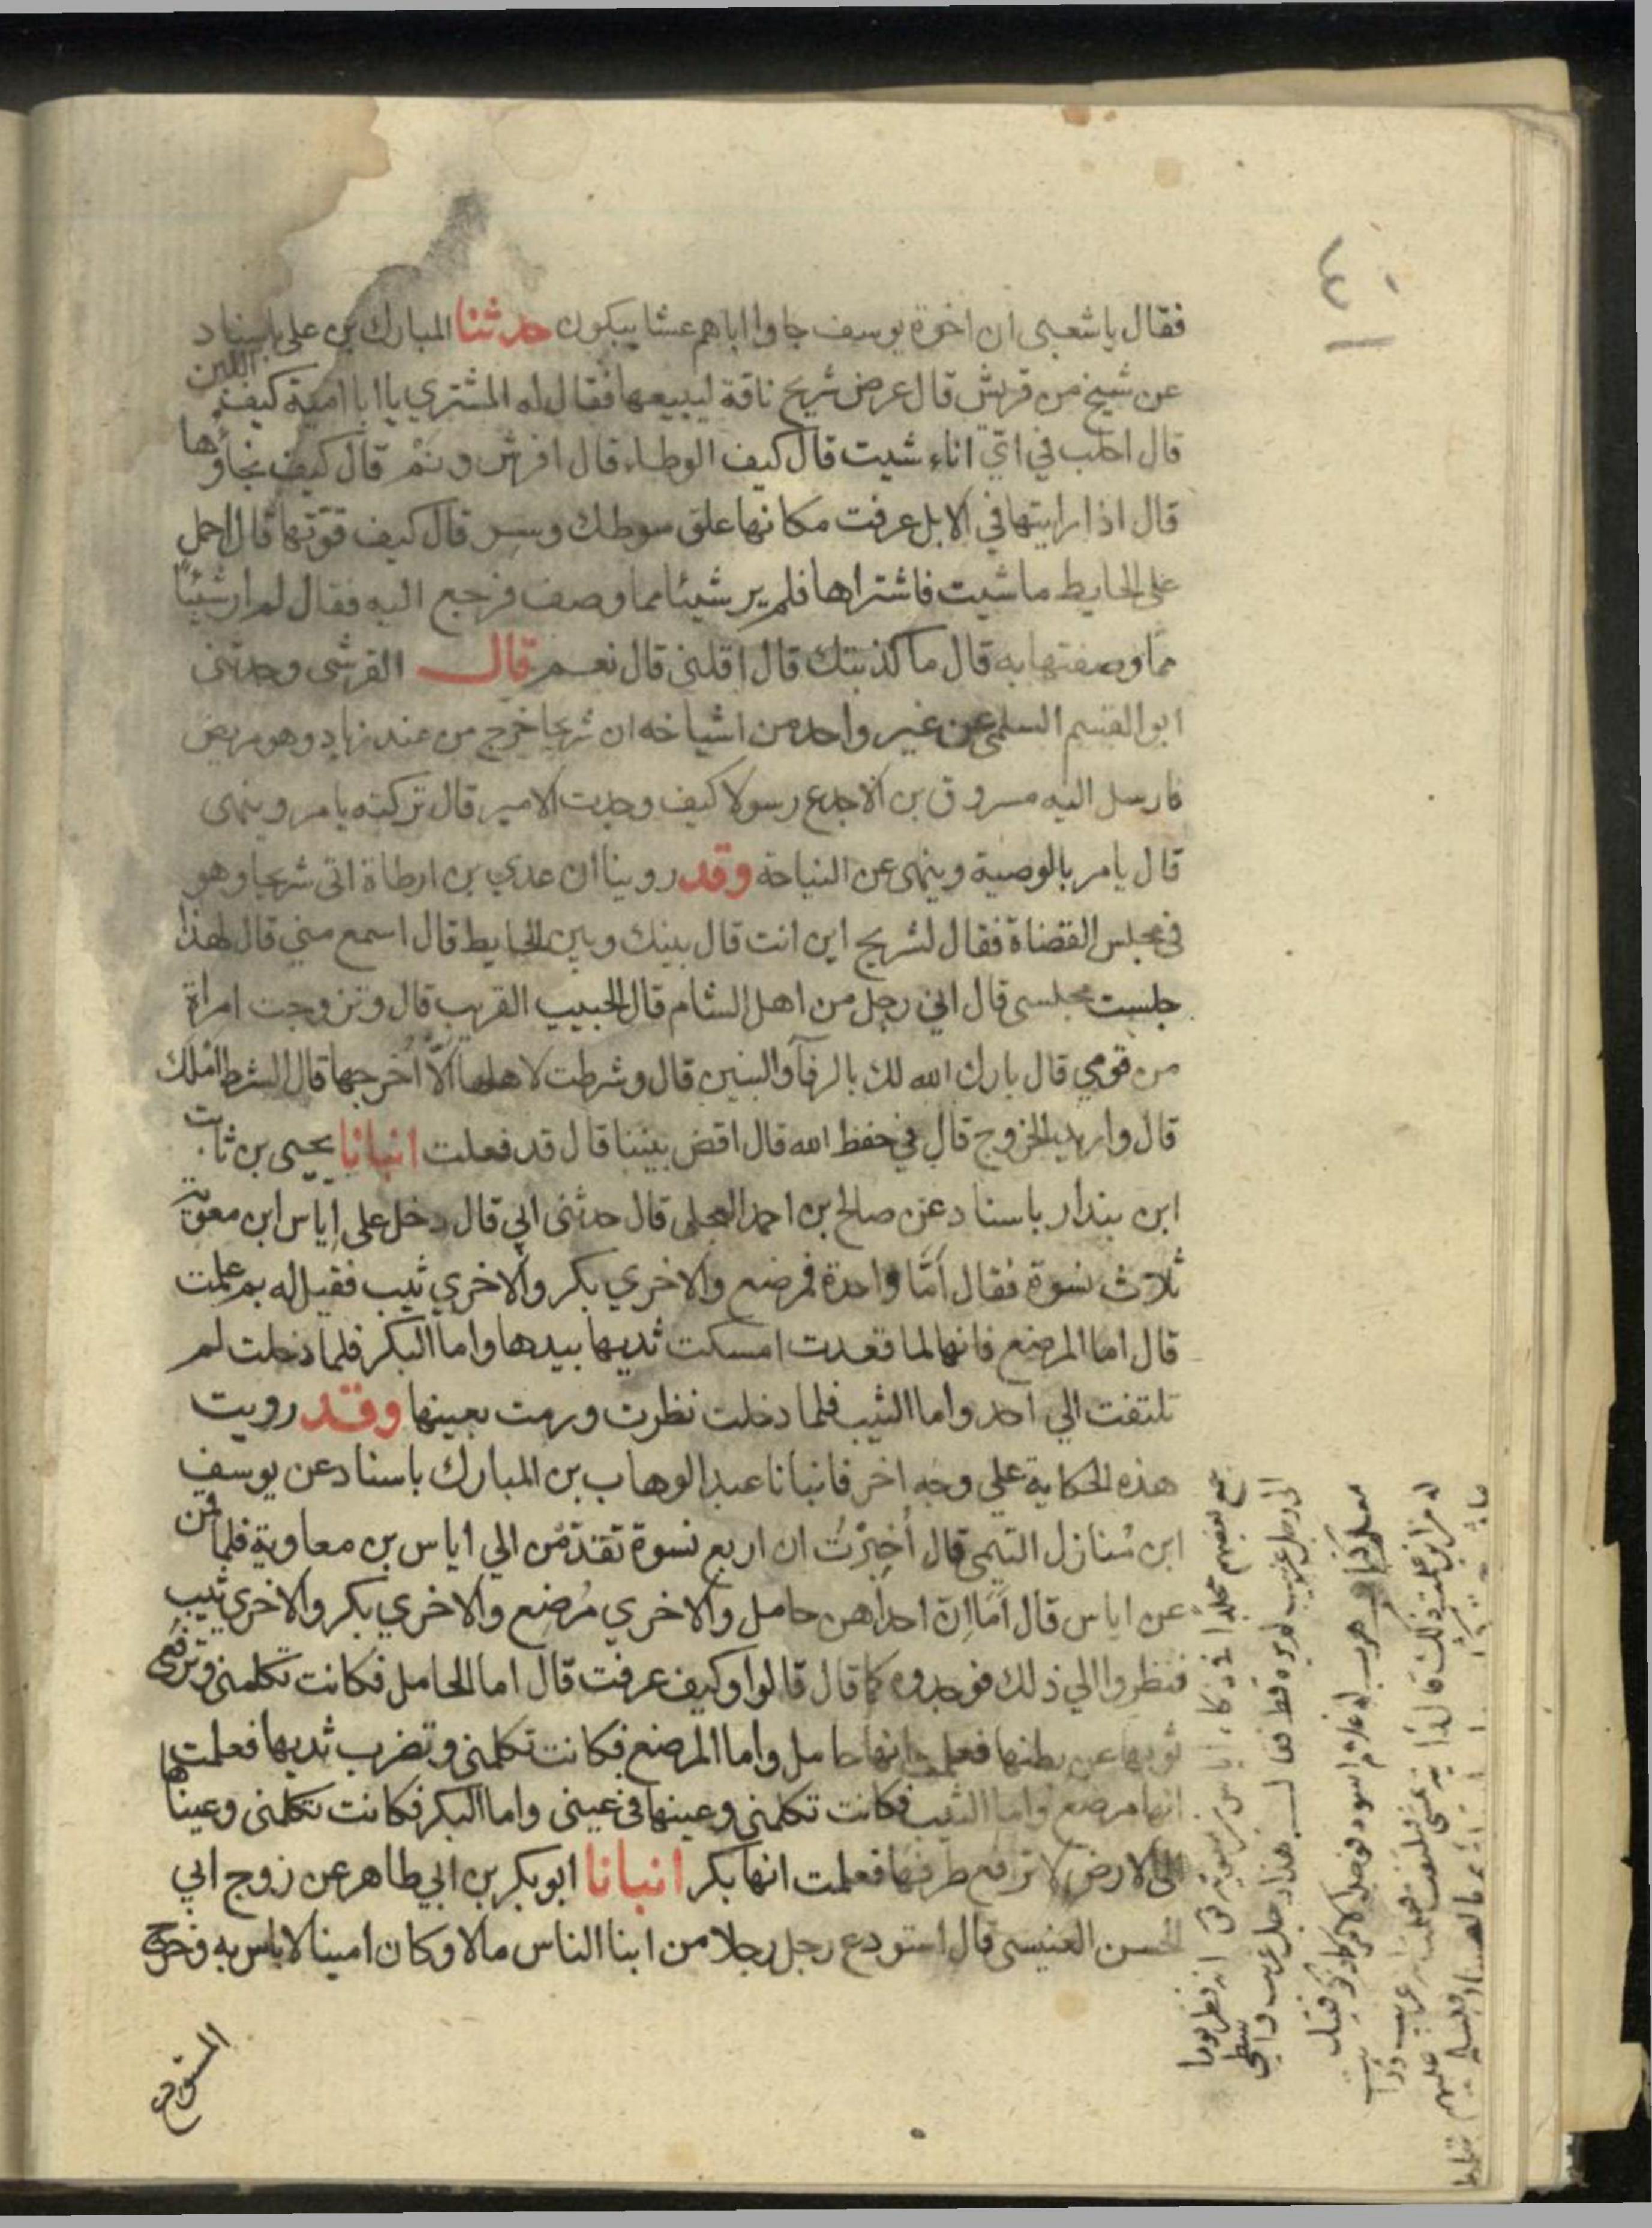 ٤٠
فقال ياشعبى ان اخوة يوسف جاوا اباهم عشا يبكون حدثنا المبارك بن على باسناد
عن شيخ من قريش قال عرض شريح ناقة ليبيعها فقال له المشتري يا ابا امية كيف اللبن
قال احلب في ايّ اناء شيت قال كيف الوطاء قال افرش ونم قال كيف نجاؤها
قال اذا رايتها في الابل عرفت مكانها علق سوطك وسر قال كيف قوّتها قال احمل
على الحايط ما شيت فاشتراها فلم ير شيئا مما وصف فرجع اليه فقال لم ار شيئا
مما وصفتها به قال ما كذبتك قال اقلنى قال نعم قال القرشى وحدثنى
ابو القسم السلمى عن غير واحد من اشياخه ان شريحا خرج من عند زياد وهو مريض
فارسل اليه مسروق بن الاجدع رسولا كيف وجدت الامير قال تركته يامر وينهى
قال يامر بالوصية وينهى عن النياحة وقد روينا ان عدي بن ارطاة اتى شريحا وهو
فى مجلس القضاة فقال لشريح اين انت قال بينك وبين الحايط قال اسمع مني قال لهذا
جلست مجلسى قال انى رجل من اهل الشام قال الحبيب القريب قال وتزوجت امراة
من قومي قال بارك الله لك بالرفآ والبنين قال وشرطت لاهلها الّا اُخرجها قال الشرط املك
قال واريد الخروج قال في حفظ الله قال اقض بيننا قال قد فعلت انبانا يحيى بن ثابت
ابن بندار باسناد عن صالح بن احمد العجلى قال حدثنى ابي قال دخل على اياس ابن معوية
ثلاث نسوة فقال اما واحدة فمرضع والاخري بكر والاخري ثيب فقيل له بم علمت
قال اما المرضع فانها لما قعدت امسكت ثديها بيدها واما البكر فلما دخلت لم
تلتفت الي احد واما الثيب فلما دخلت نظرت ورمت بعينها وقد رويت
هذه الحكاية علي وجه اخر فانبانا عبد الوهاب بن المبارك باسناد عن يوسف
ابن مُنازل التيمى قال اُخبِرْتُ ان اربع نسوة تقدّمن الي اياس بن معاوية فلما قمن
عن اياس قال اَمّا اِنّ احداهن حامل والاخري مُرضع والاخري بكر والاخري ثيب
فنظروا الي ذلك فوجدوه كما قال قالوا وكيف عرفت قال اما الحامل فكانت تكلمنى وترفع
ثوبها عن بطنها فعلمت انها حامل واما المرضع فكانت تكلمنى وتضرب ثديها فعلمت
انها مرضع واما الثيب فكانت تكلمنى وعينها فى عينى واما البكر فكانت تكلمنى وعيناها
الى الارض لا ترفع طرفها فعلمت انها بكر انبانا ابو بكر بن ابي طاهر عن زوج ابي
الحسن العنيسى قال استودع رجل رجلا من ابنا الناس مالا وكان امينا لا باس به وخرج
المستودع
جمع بعضهم مجلدا فى ذكاء اياس انه نظر يوما
الى رجل غريب لم يره قط فقال هذا رجل غريب واسطى
معلم هرب له غلام اسود فوجد الامر كما ذكر فقيل
له من اين علمت ذلك قال رايته يمشى ويلتفت فعلمت انه غريب